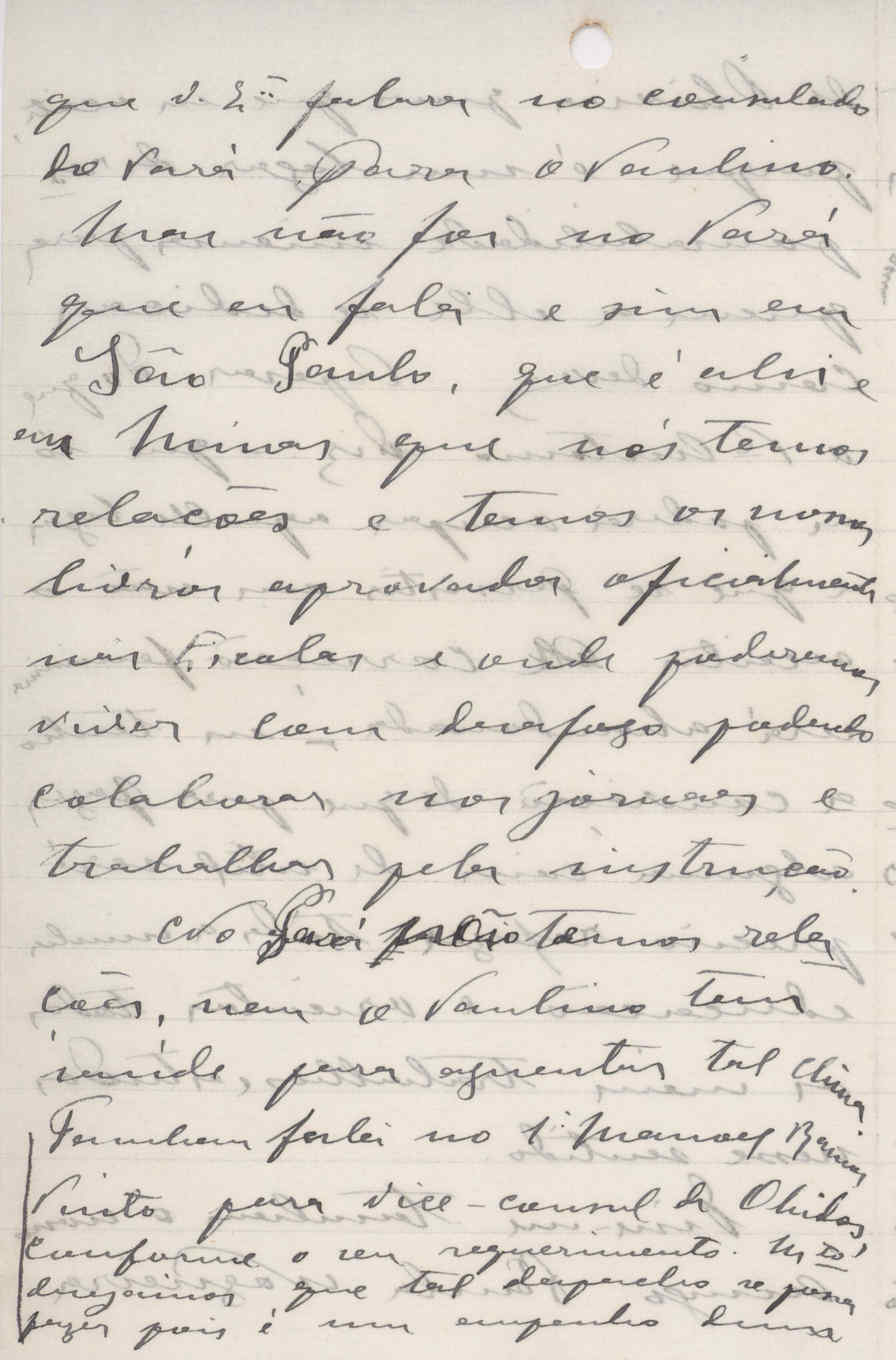 que V. Ex.ª falara no consulado
do Pará para o Paulino.
Mas não foi no Pará
que eu falei e sim em
São Paulo, que é ali e
em Minas que nós temos
relações e temos os nossos
livros aprovados oficialmente
nas Escolas e onde poderemos
viver com desafogo podendo
colaborar nos jornaes e
trabalhar pela instrução.
No Pará não temos rela
ções, nem o Paulino tem
saúde para aguentar tal clima
Tambem falei no Manoel
Pinto para vice-consul de Obidos,
conforme o seu requerimento. Mto
desejamos que tal despacho se possa
fazer pois é um empenho duma